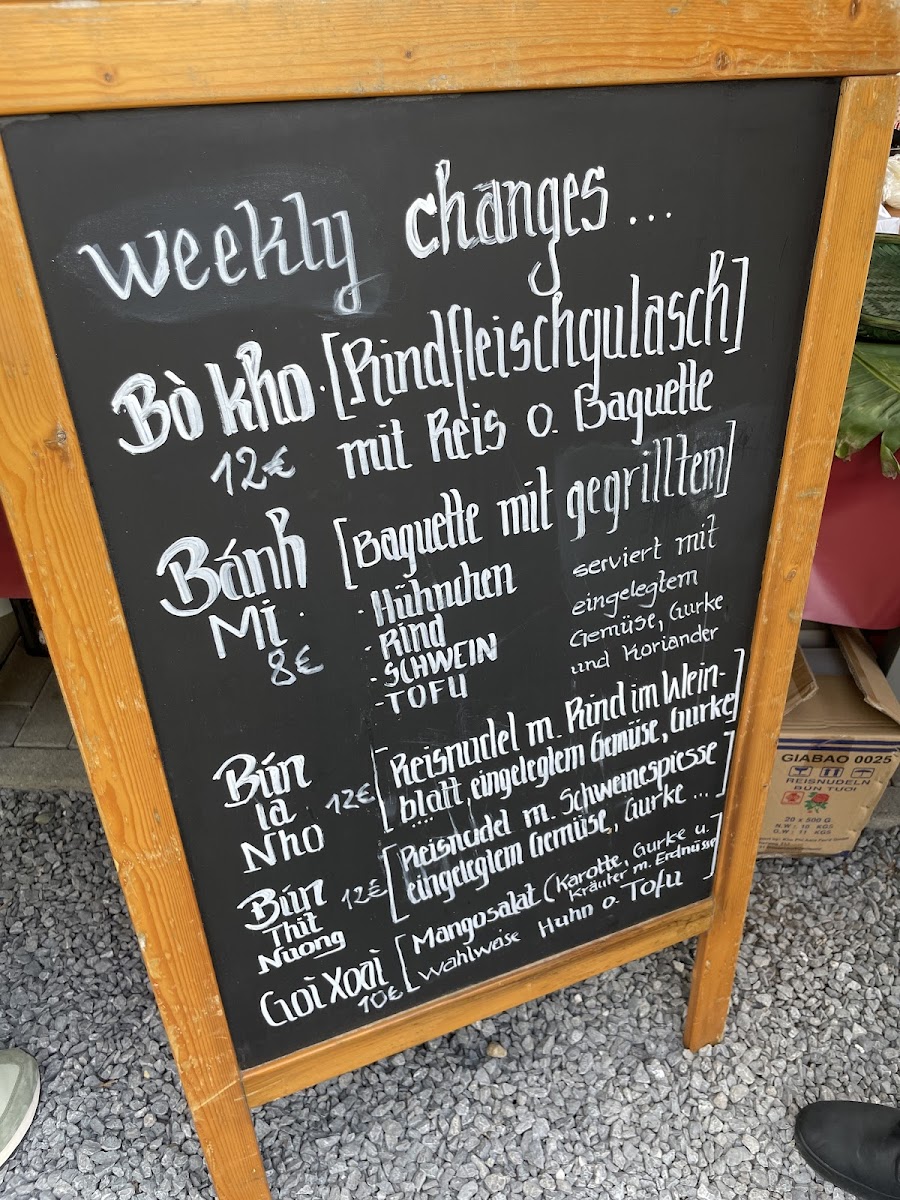 weekly changes ...
Bò kho. [Rindfleischgulasch]
12€ mit Reis o. Baguette
Bánh Mi. 8€
[Baguette mit gegrilltem]
- Hühnchen
- Rind
- SCHWEIN
- TOFU
serviert mit
eingelegtem
Gemüse, Gurke
und Koriander
Bún la Nho 12€
[Reisnudel m. Rind im Wein-
blatt, eingelegtem Gemüse, Gurke]
Bún Thit Nuong 12€
[Reisnudel m. Schweinespiesse
eingelegtem Gemüse, Gurke ...]
Goi Xoai 10€
[Mangosalat (Karotte, Gurke u.
Kräuter m. Erdnüsse]
Wahlweise Huhn o. Tofu
GIABAO 0025
REISNUDELN
BUN TUOI
20 x 500 G
N.W : 10 KGS
G.W : 11 KGS